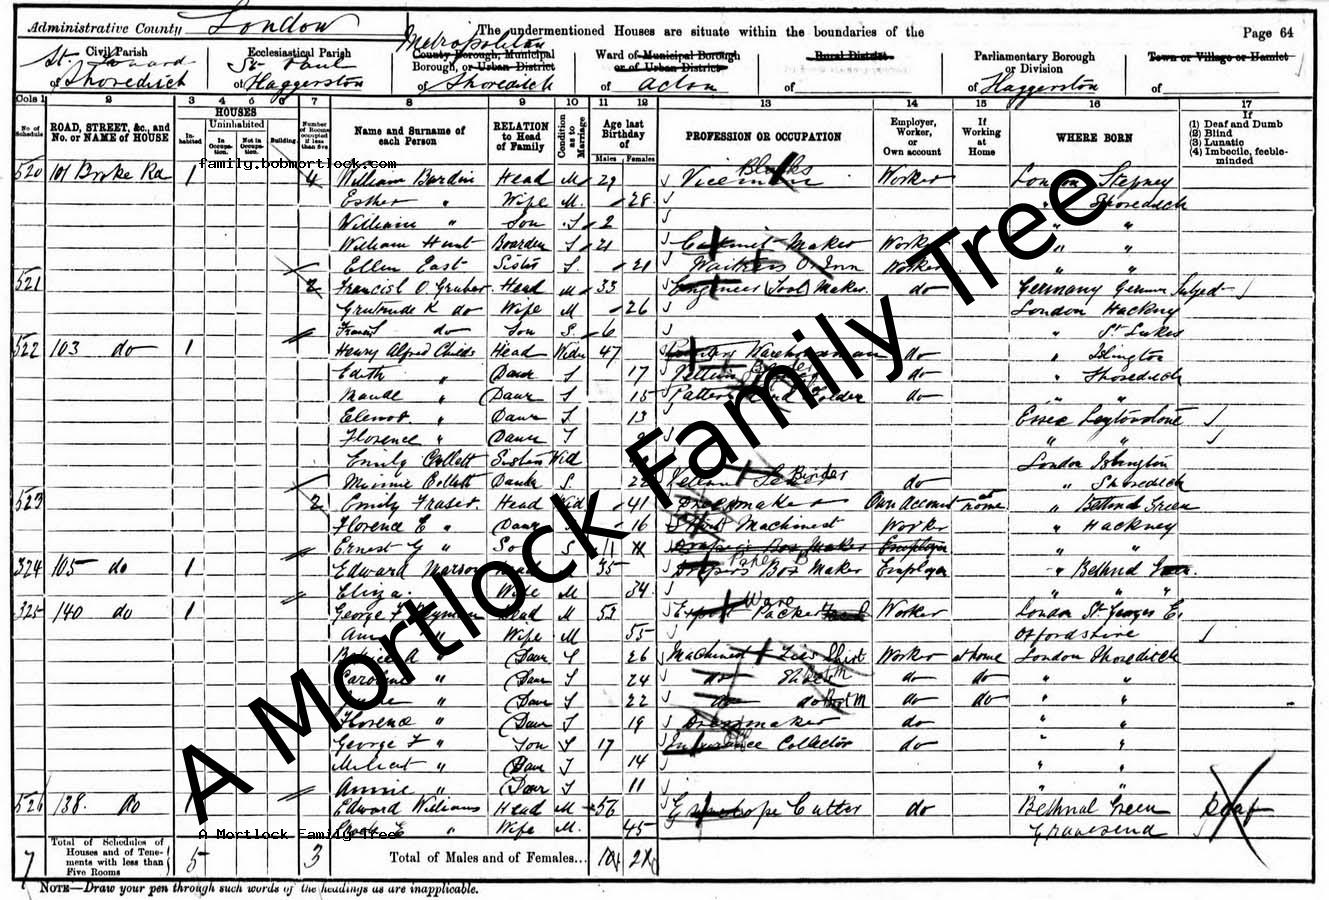 Administrative County London
The undermentioned Houses are situate within the boundaries of the
Page 64
Civil Parish
of Shoreditch
Ecclesiastical Parish
St Paul
of Haggerston
Metropolitan
County Borough, Municipal
Borough, or Urban District
of Shoreditch
Ward of Municipal Borough
or of Urban District
of Acton
Rural District
of
Parliamentary Borough
or Division
of Haggerston
Town or Village or Hamlet
of
Cols 1 2 3 4 5 6 7 8 9 10 11 12 13 14 15 16 17
No of Schedule
ROAD, STREET, &c., and
No. or NAME of HOUSE
HOUSES
In-habited
Uninhabited
In Occupa-tion.
Not in Occupa-tion.
Building
Number of Rooms occupied if less than five
Name and Surname of
each Person
RELATION
to Head
of Family
Condition as to Marriage
Age last
Birthday
of
Males Females
PROFESSION OR OCCUPATION
Employer,
Worker,
or
Own account
If
Working
at
Home
WHERE BORN
If
(1) Deaf and Dumb
(2) Blind
(3) Lunatic
(4) Imbecile, feeble-
minded
family.bobmortlock.com
520 101 Broke Rd 1 4 William Head M 29 Worker London Stepney
Esther " Wife M. 28 " Shoreditch
William " Son S 2 " "
William Hunt Boarder S 21 Cabinet Maker Worker " "
Ellen East Sister S. 21 Waitress Inn Worker " "
521 2 Head M 33 Engineer (Tool) Maker. do Germany German Subject
Gertrude K do Wife M 26 London Hackney
Francis do Son S. 6 " St Lukes
522 103 do 1 Henry Alfred Childs Head Widr 47 Warehouseman do " Islington
Edith " Daur S 17 do " Shoreditch
Maude " Daur S 15 Pattern Folder do " "
" Daur S 13 Essex Leytonstone
Florence " Daur S " "
Emily Collett Sister Wid London Islington
Minnie Collett S. Binder do " Shoreditch
523 2 Emily Fraser. Head Wid 41 Dressmaker Own Account at home " Bethnal Green
Florence E " Daur 16 Shirt Machinist Worker " Hackney
Ernest G " S 11 Employer " "
324 105 do 1 Edward Head 35 Box Maker Employer " Bethnal Green
Eliza. Wife M 34 " " "
325 140 do 1 George F Head M 53 Export Ware Packer Worker London St Georges E.
" Wife M 55 Oxfordshire
A " Daur S 26 Machinist Shirt Worker at home London Shoreditch
Caroline " Daur S 24 do do do " "
" Daur S 22 do do do do " "
Florence " Daur S 19 Dressmaker do " "
George F " Son S 17 Insurance Collector do " "
" Daur S 14 " "
Annie " Daur S 11 " "
526 138. do 1 Edward Williams Head M 56 Cutter do Bethnal Green Deaf
E " Wife M. 45 Gravesend
A Mortlock Family Tree
7
Total of Schedules of
Houses and of Tene-
ments with less than
Five Rooms
5
3
Total of Males and of Females...
10 21
NOTE—Draw your pen through such words of the headings as are inapplicable.
A Mortlock Family Tree